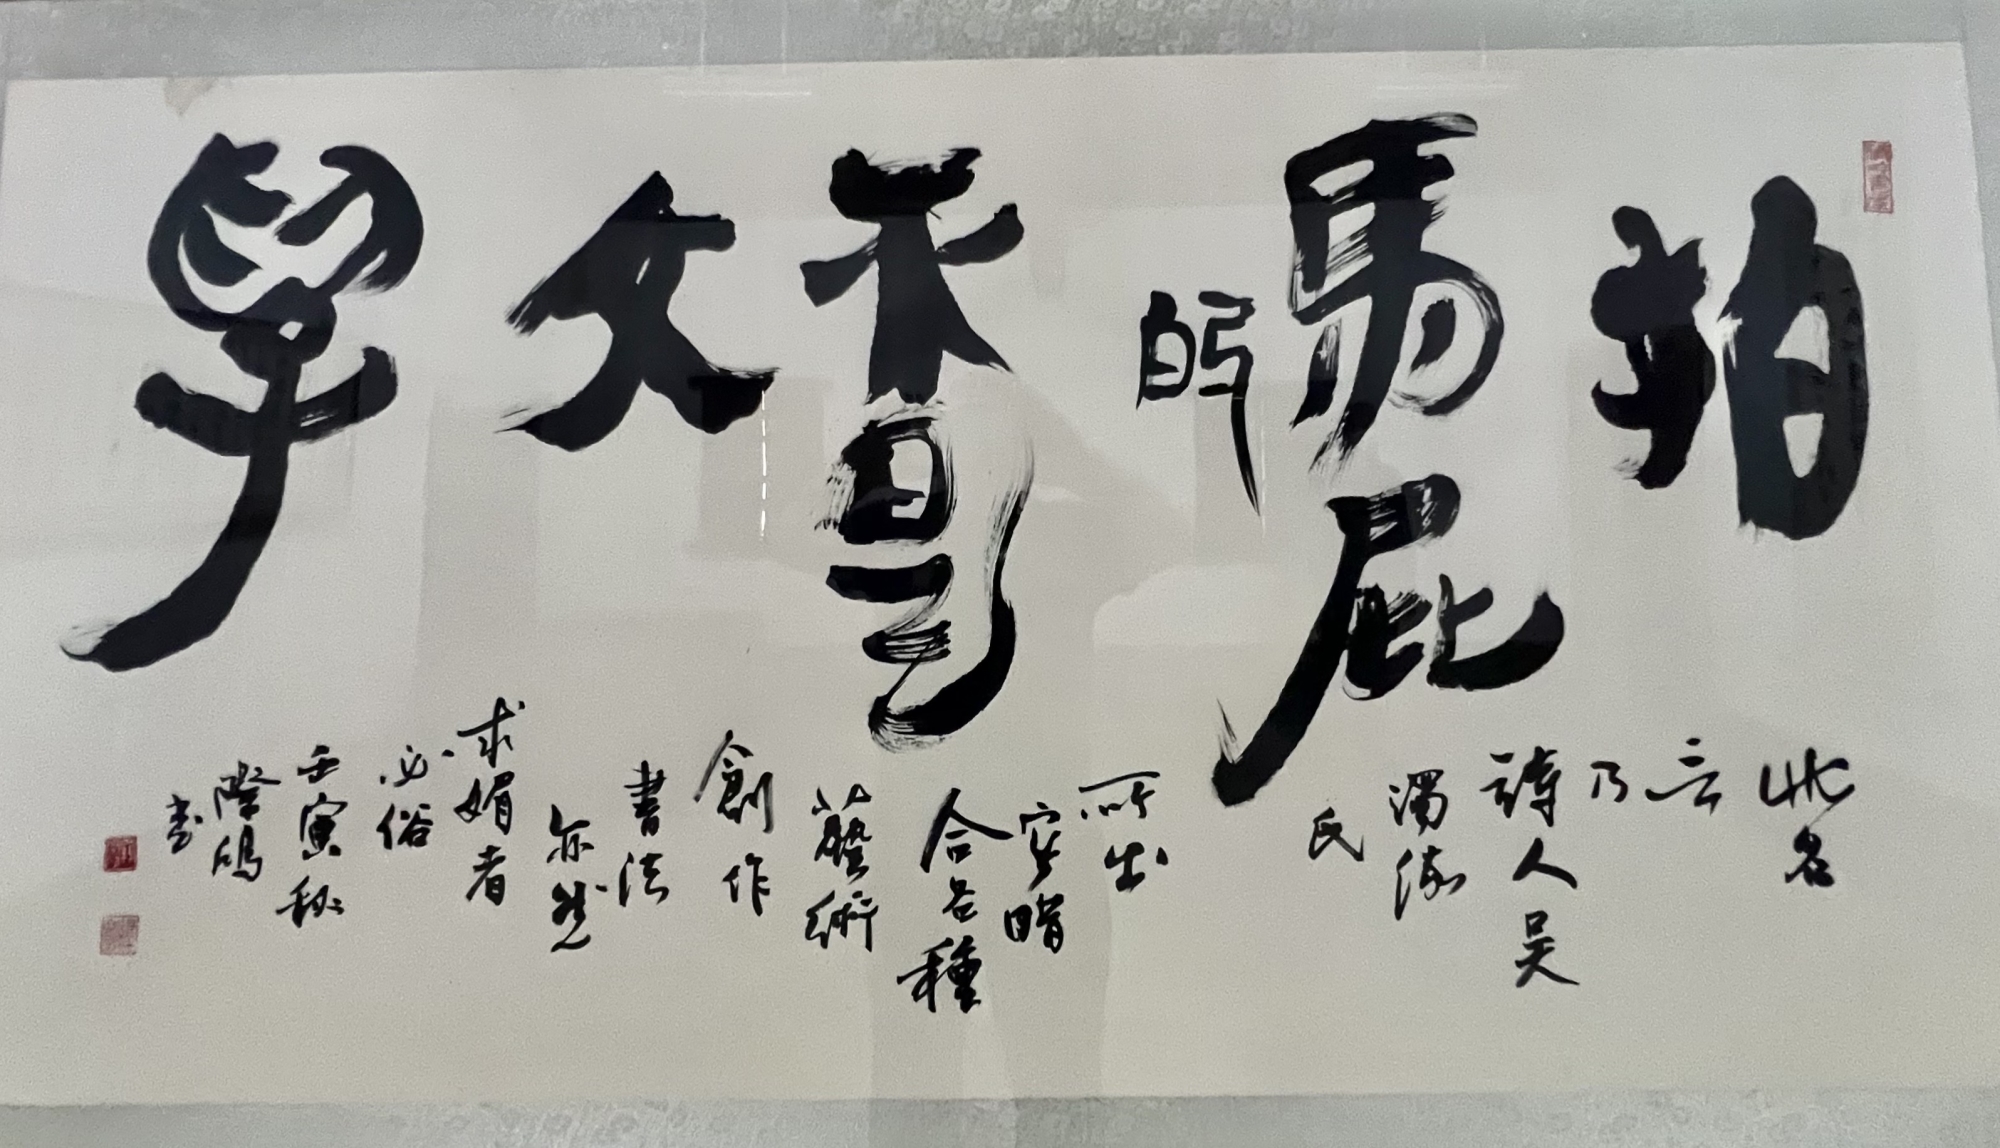 拍
馬屁
的
不是
文
學
此名
言
乃
詩人吳
濁流
氏
所出
實暗
合各種
藝術
創作
書法
亦然
求媚者
必俗
壬寅秋
際
書